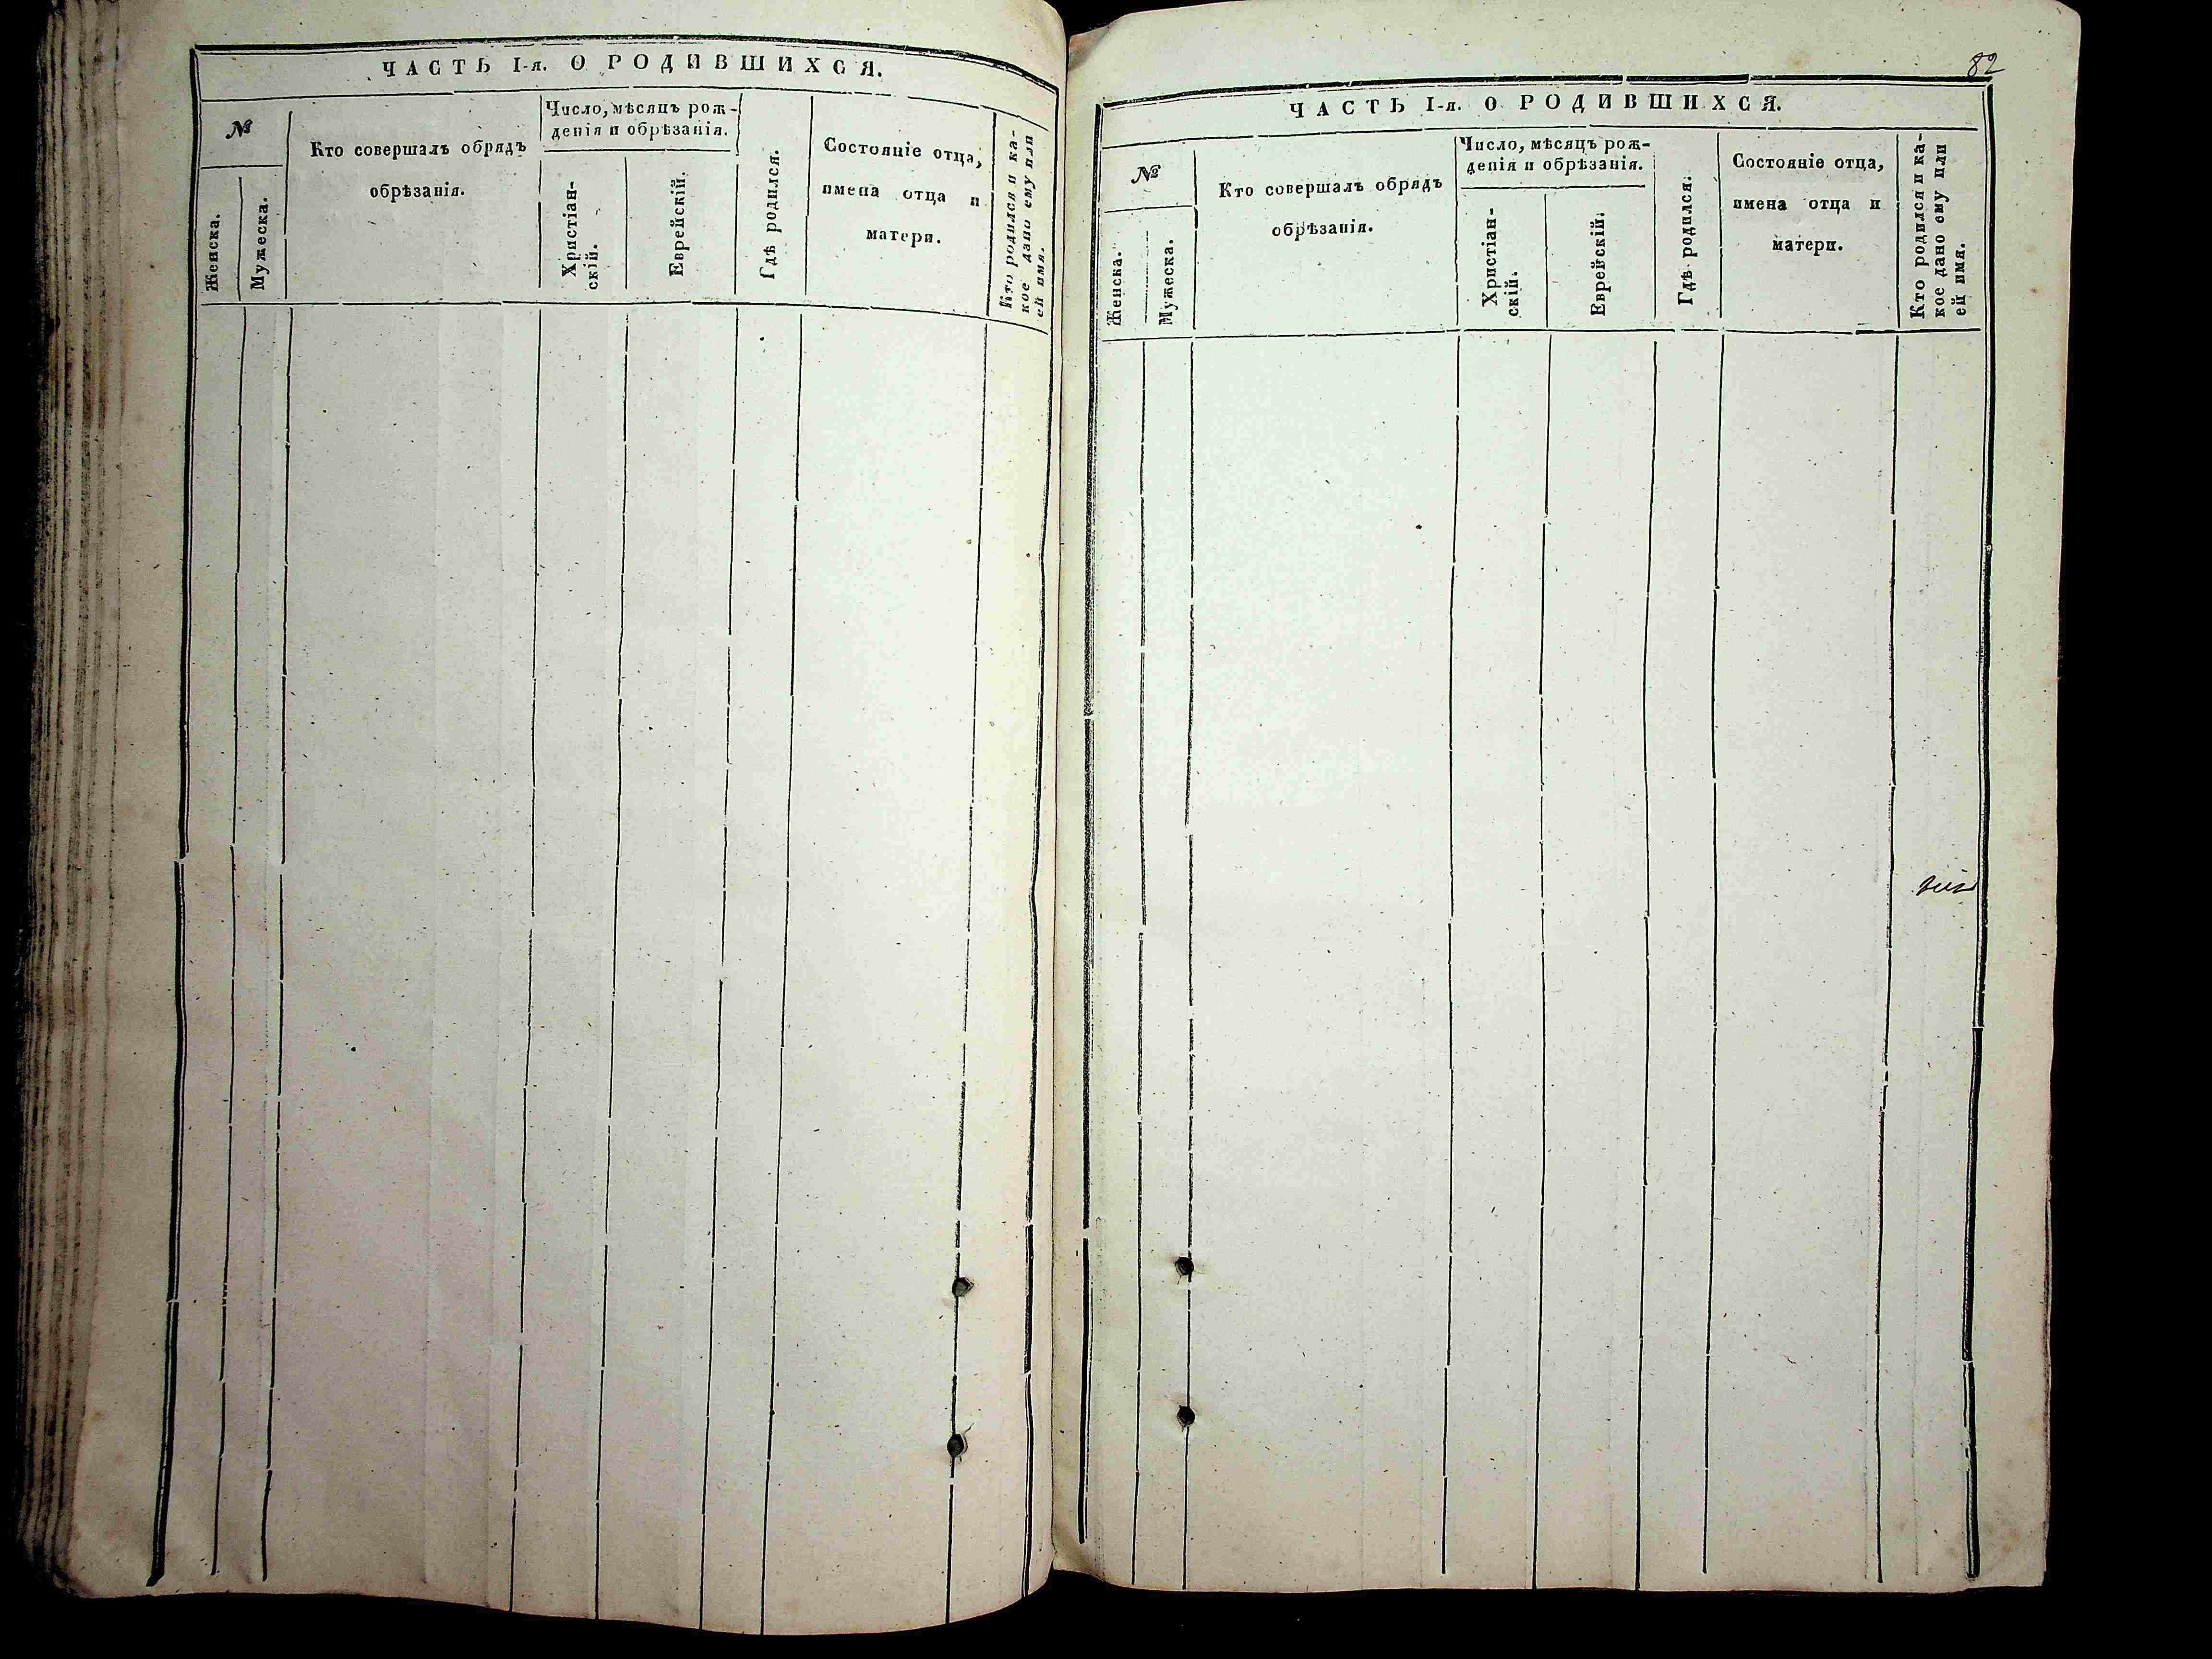 ЧАСТЬ I-я. О РОДИВШИХСЯ.
№
Женска.
Мужеска.
Кто совершалъ обрядъ
обрѣзанія.
Число, мѣсяцъ рож-
денія и обрѣзанія.
Христіан-
скій.
Еврейскій.
Гдѣ родился.
Состояніе отца,
имена отца и
матери.
Кто родился и ка-
кое дано ему или
ей имя.
82
ЧАСТЬ I-я. О РОДИВШИХСЯ.
№
Женска.
Мужеска.
Кто совершалъ обрядъ
обрѣзанія.
Число, мѣсяцъ рож-
денія и обрѣзанія.
Христіан-
скій.
Еврейскій.
Гдѣ родился.
Состояніе отца,
имена отца и
матери.
Кто родился и ка-
кое дано ему или
ей имя.